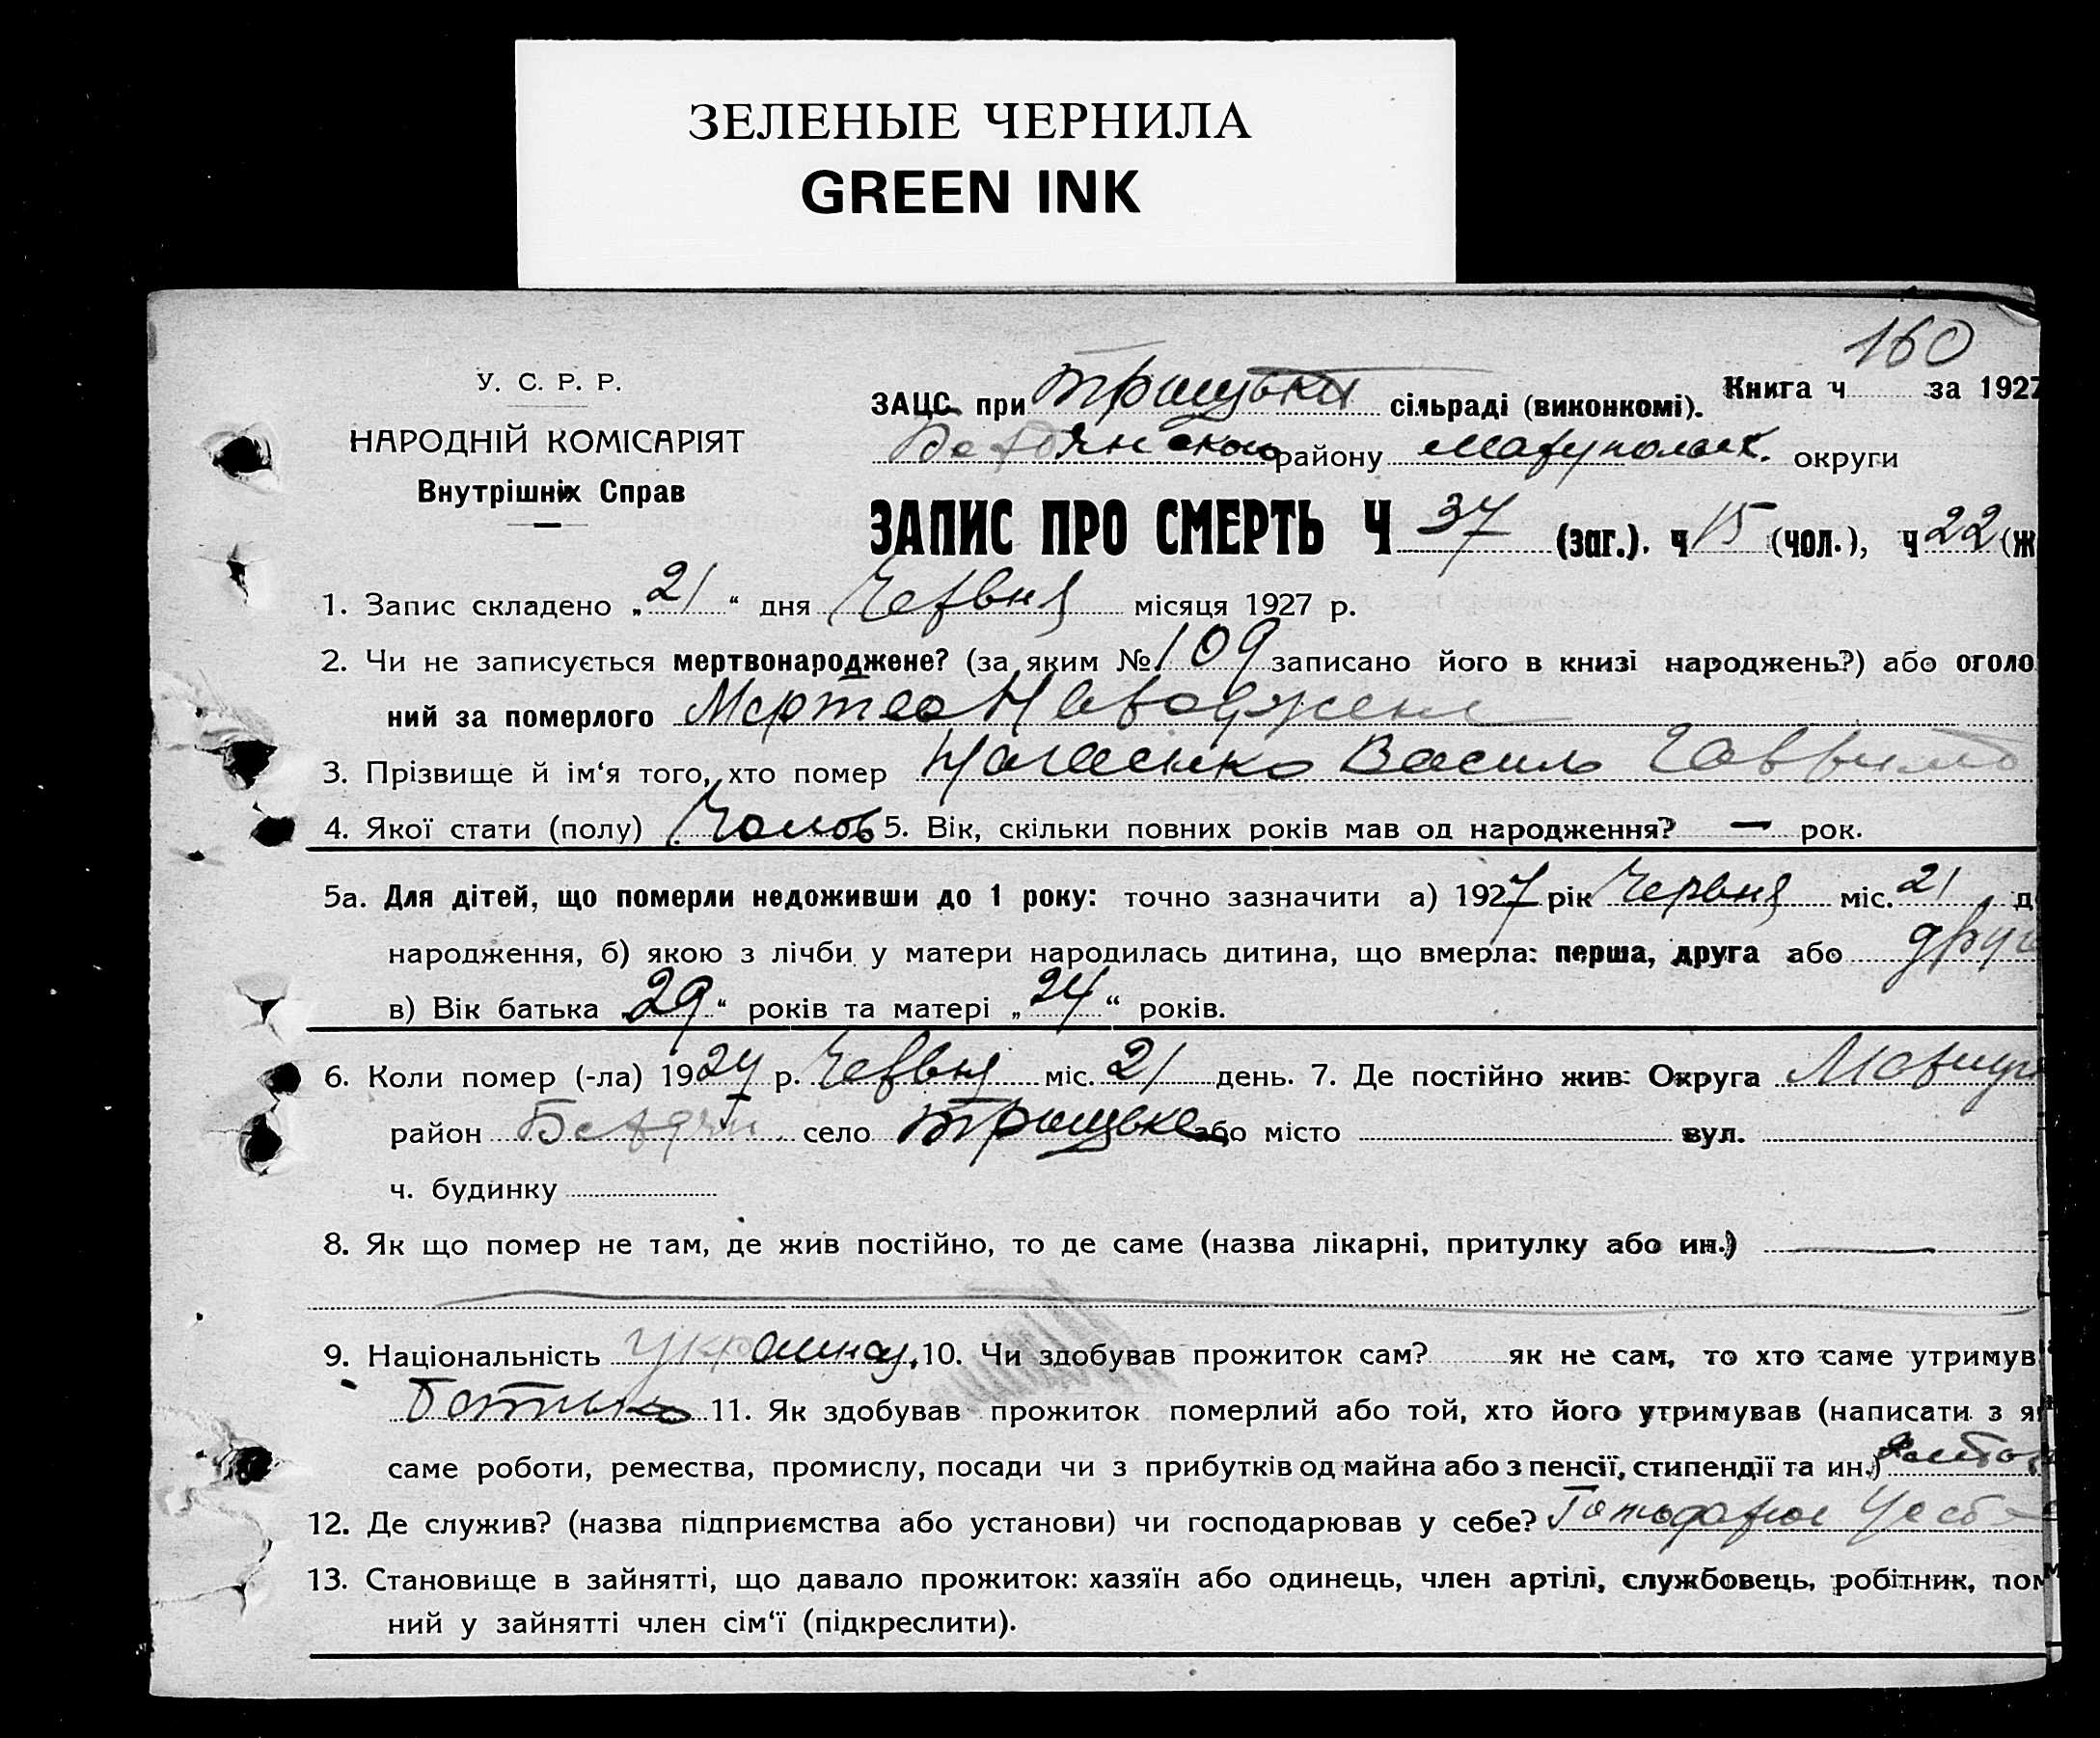 ЗЕЛЕНЫЕ ЧЕРНИЛА
GREEN INK
160
У. С. Р. Р.
НАРОДНІЙ КОМІСАРІЯТ
Внутрішніх Справ
Книга ч за 1927
ЗАЦС при сільраді (виконкомі).
району округи
ЗАПИС ПРО СМЕРТЬ Ч 37 (заг.). ч 15 (чол.), ч 22 (ж
1. Запис складено „21“ дня Червня місяця 1927 р.
2. Чи не записується мертвонароджене? (за яким № 109 записано його в книзі народжень?) або оголо
ний за померлого Мертво Народжене
3. Прізвище й ім‘я того, хто помер Василь
4. Якої стати (полу) Чолов 5. Вік, скільки повних років мав од народження? — рок.
5а. Для дітей, що померли недоживши до 1 року: точно зазначити а) 1927 рік Червня міс. 21 д
народження, б) якою з лічби у матери народилась дитина, що вмерла: перша, друга або друг
в) Вік батька „29“ років та матері „24“ років.
6. Коли помер (-ла) 1927 р. Червня міс. 21 день. 7. Де постійно жив: Округа
район село або місто вул.
ч. будинку
8. Як що помер не там, де жив постійно, то де саме (назва лікарні, притулку або ин.) —
9. Національність 10. Чи здобував прожиток сам? як не сам, то хто саме утримув
Батько 11. Як здобував прожиток померлий або той, хто його утримував (написати з я
саме роботи, ремества, промислу, посади чи з прибутків од майна або з пенсії, стипендії та ин.)
12. Де служив? (назва підприємства або установи) чи господарював у себе?
13. Становище в зайнятті, що давало прожиток: хазяїн або одинець, член артілі, службовець, робітник, пом
ний у зайнятті член сім‘ї (підкреслити).